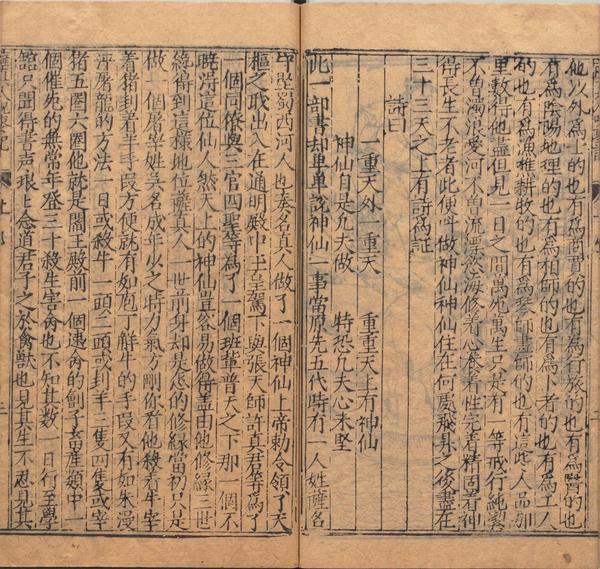 他以外為士的也有為商賈的也有為行旅的也有為醫的也
有為陰陽地理的也有為相師的也有為卜者的也有為工人
的也有為漁樵耕牧的也有為琴師畫師的也有這些人品那
里數得他盡但見一日之間萬死萬生只是有一等戒行純
不曾濁浪愛河不曾流漂慾海修着心養着性完着精固着神
得長生不老者此便叫做神仙神仙住在何處飛昇之後盡在
三十三天之上有詩為証
詩曰
一重天外一重天 重重天上有神仙
神仙自是凡夫做 特恐凡夫心未堅
此一部書却單單說神仙一事當原先五代時有一人姓薩名
守堅蜀西河人也奏名真人做了一個神仙上帝勅令領了天
樞之職出入在通明殿中玉皇駕下與張天師許真君等為了
一個同僚與三官四聖等為了一個班輩普天之下那一個不
曉得這位仙人然天上的神仙豈容易做得盖由他修緣三世
纔得到這樣地位薩真人一世前身却是怎的修緣當初只是
做一個屠宰姓吳名成年少之時力氣方剛你看他殺着牛宰
着猪刲着羊手段方便就有如庖丁解牛的手段又有如朱漫
泙屠龍的方法一日或殺牛一頭二頭或刲羊三隻四隻或宰
猪五圈六圈他就是閻王殿前一個逺命的劊子畜産類中一
個催死的無常年登三十殺生害命也不知其數一日行至學
舘只聞得書声琅琅念道君子之於禽獸也見其生不忍見其